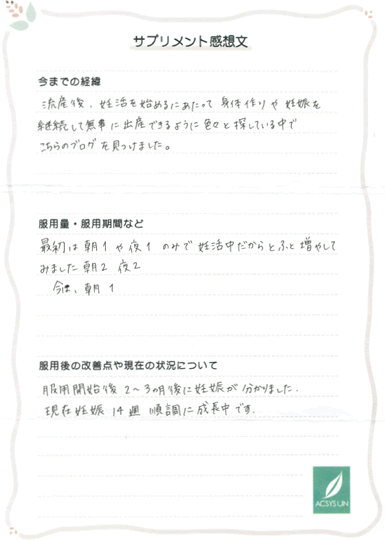 サプリメント感想文
今までの経緯
流産後、妊活を始めるにあたって 身体作りや 妊娠を
継続して無事に出産できるように色々と探している中で
こちらのブログを見つけました。
服用量・服用期間など
最初は 朝1 や 夜1 のみで 妊活中だからとふと増やして
みました 朝2 夜2
今は、朝 1
服用後の改善点や現在の状況について
服用開始後 2～3ヵ月後に妊娠が 分かりました。
現在妊娠 14週 順調に成長中です。
ACSYS UN